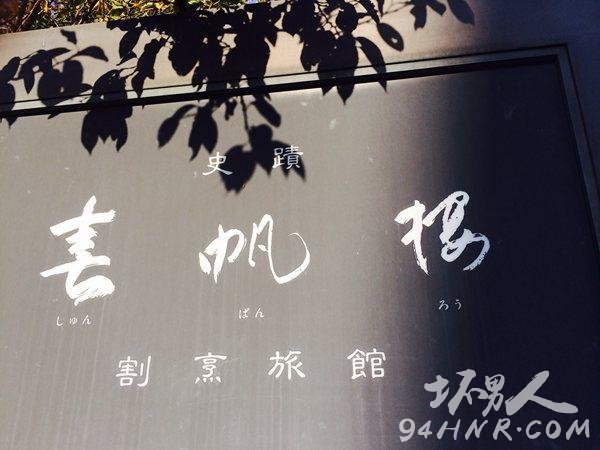 史蹟
春帆楼
しゅん ぱん ろう
割烹旅館
坏男人
94HNR.COM